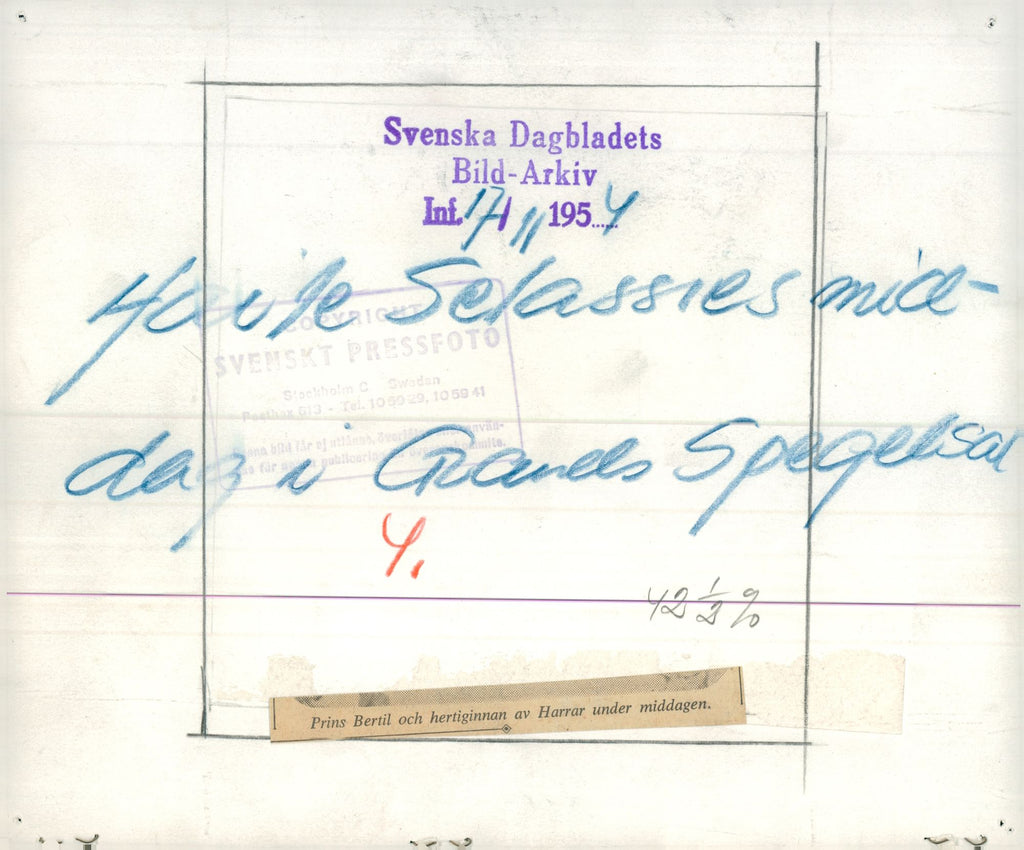 Svenska Dagbladets
Bild-Arkiv
Inf. 17/11 1954
Haile Selassies mid-
COPYRIGHT
SVENSKT PRESSFOTO
Stockholm C Sweden
Postbox 613 - Tel. 10 59 29, 10 59 41
bild får ej utlånas,
får publiceras
dag i Grands Spegelsal
4.
42 ½ %
Prins Bertil och hertiginnan av Harrar under middagen.